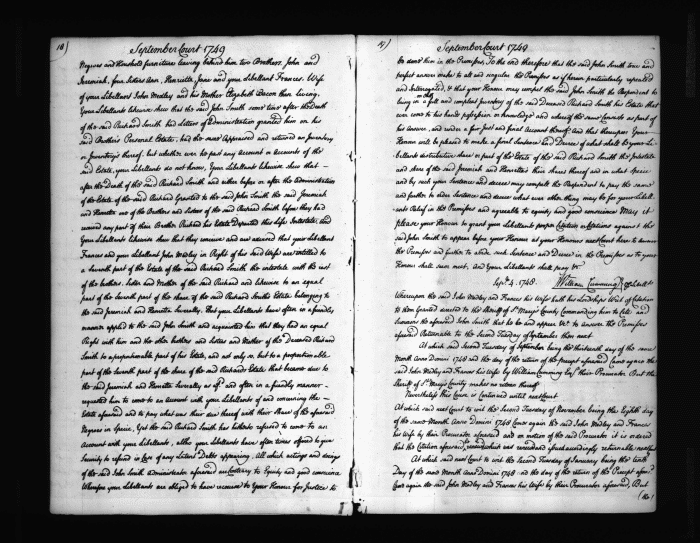 16)
September Court 1749
Negroes and Household furniture leaving behind him two Brothers John and
Jeremiah, four Sisters Ann, Henrietta, Jane and your Libellant Frances, Wife
of your Libellant John Medley and his Mother Elizabeth Bacon then living,
Your Libellants likewise shew that the said John Smith some time after the Death
of the said Richard Smith had Letters of Administration granted him on his
said Brother's Personal Estate, had the same Appraised and returned an Inventory
or Inventorys thereof, but whether ever he past any account or accounts of the
said Estate, your Libellants do not know, Your Libellants likewise shew that
after the Death of the said Richard Smith and either before or after the administration
of the Estate of the said Richard Granted to the said John Smith the said Jeremiah
and Henrietta two of the Brothers and Sisters of the said Richard Smith before they had
received any part of their Brother Richard his Estate Departed this Life Intestate, and
Your Libellants likewise shew that they conceive and are advised that your Libellant
Frances and your Libellant John Medley in Right of his said Wife are entitled to
a seventh part of the Estate of the said Richard Smith the intestate with the rest
of the brothers, sisters and Mother of the said Richard and likewise to an equal
part of the seventh part of the share of the said Richard Smith's Estate belonging to
the said Jeremiah and Henrietta severally, That your Libellants have often in a friendly
manner applied to the said John Smith and acquainted him that they had an equal
Right with him and the other brothers and sisters and Mother of the Deceased Richard
Smith to a proportionable part of his Estate, and not only so, but to a proportionable
part of the seventh part of the share of the said Richard's Estate that became due to
the said Jeremiah and Henrietta severally as afd. and often in a friendly manner
requested him to come to an account with your Libellants of and concerning the
Estate aforesaid and to pay what was their due thereof with their share of the aforesaid
Negroes in Specie, Yet the said Richard Smith has hitherto refused to come to an
Account with your Libellants, altho your Libellants have often times offered to give
Security to refund in Case of any Latent Debts appearing, All which actings and doings
of the said John Smith administrator aforesaid are Contrary to Equity and good conscience
Wherefore your Libellants are obliged to have recourse to Your Honour for Justice to
17)
September Court 1749
be done them in the Premisses, To the end therefore that the said John Smith true and
perfect answer make to all and singular the Premisses as if herein particularly repeated
and Interrogated, & that your Honour may compel the said John Smith the Respondent to
bring in on Oath a full and compleat Inventory of the said Deceased Richard Smith his Estate that
ever came to his hands possession or knowledge and where if the same Consists as part of
his answer, and under a fair just and final Account thereof And that thereupon Your
Honour will be pleased to make a final Sentence and Decree of what shall be your Li-
bellants distributive share or part of the Estate of the said Richard Smith the Intestate
and share of the said Jeremiah and Henrietta their shares thereof and in what specie
and by such your Sentence and decree may compel the Respondent to pay the same
and further to order sentence and decree what ever other thing may be for your Libell-
ants Relief in the Premisses and agreeable to equity and good conscience May it
please your Honour to grant your Libellants proper Citation or Citations against the
said John Smith to appear before your Honour at your Honours next Court here to answer
the Premises and further to abide such Sentence and Decree in the Premisses as to your
Honour shall seem meet, and Your Libellants shall pray &c
Septr. 4. 1748. William Cumming
Whereupon the said John Medley and Frances his Wife hath his Lordships Writ of Citation
to them Granted directed to the Sheriff of St. Mary's County Commanding him to Cite and
Summon the aforesaid John Smith that he be and appear &c. to answer the Premisses
aforesaid Returnable to the Second Tuesday of September then next.
At which said Second Tuesday of September being the thirteenth day of the same
Month Anno Domini 1748 and the day of the return of the precept aforesaid Came again the
said John Medley and Frances his Wife by William Cumming Esqr. their Procurator But the
Sheriff of St. Mary's County makes no return thereof
Nevertheless this Cause is Continued until next Court
At which said next Court to wit the Second Tuesday of November being the Eighth day
of the same Month Anno Domini 1748 Comes again the said John Medley and Frances
his Wife by their Procurator aforesaid and on motion of the said Procurator it is ordered
that the Citation aforesaid be renewed which was renewed aforesd. accordingly returnable next Court
At which said next Court to wit the Second Tuesday of January being the tenth
Day of the same Month Anno Domini 1748 and the day of the return of the Precept aforesd.
Comes again the said John Medley and Frances his Wife by their Procurator aforesaid, But
(the)